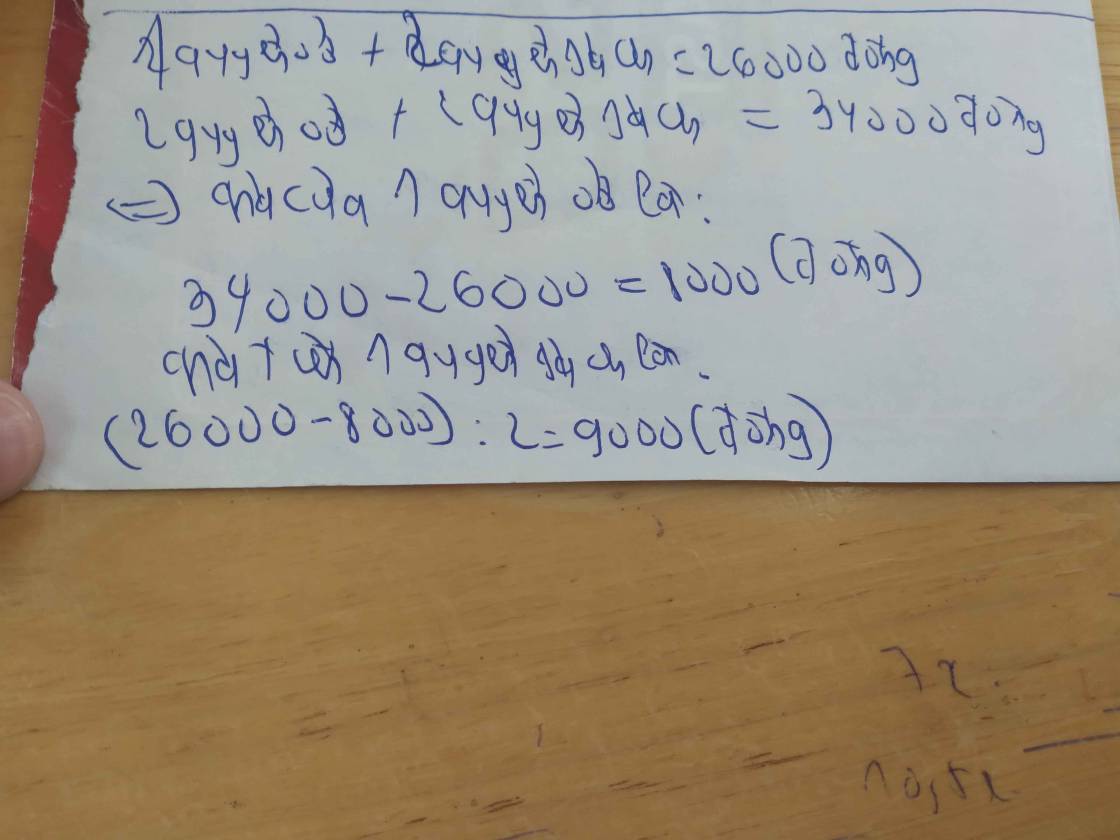 1 quyển vở + 2 quyển sách = 26000 đồng
2 quyển vở + 2 quyển sách = 34000 đồng
<=> giá của 1 quyển vở là:
34000 - 26000 = 8000 (đồng)
giá tiền 1 quyển sách là.
(26000 - 8000) : 2 = 9000 (đồng)
7x.
10,5x